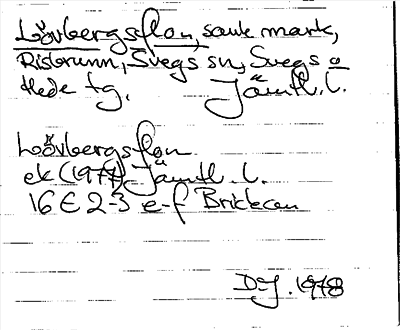 Lövbergsflon, sank mark,
Risbrunn, Svegs sn, Svegs o
Hede tg. Jämtl. l.
Lövbergsflon
ek (1977) Jämtl. l.
16 E 2-3 e-f Brickan
DJ. 1978